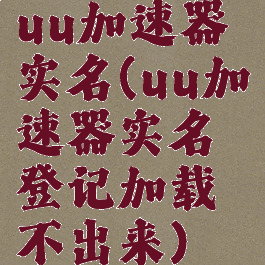 uu加速器
实名(uu加
速器实名
登记加载
不出来)